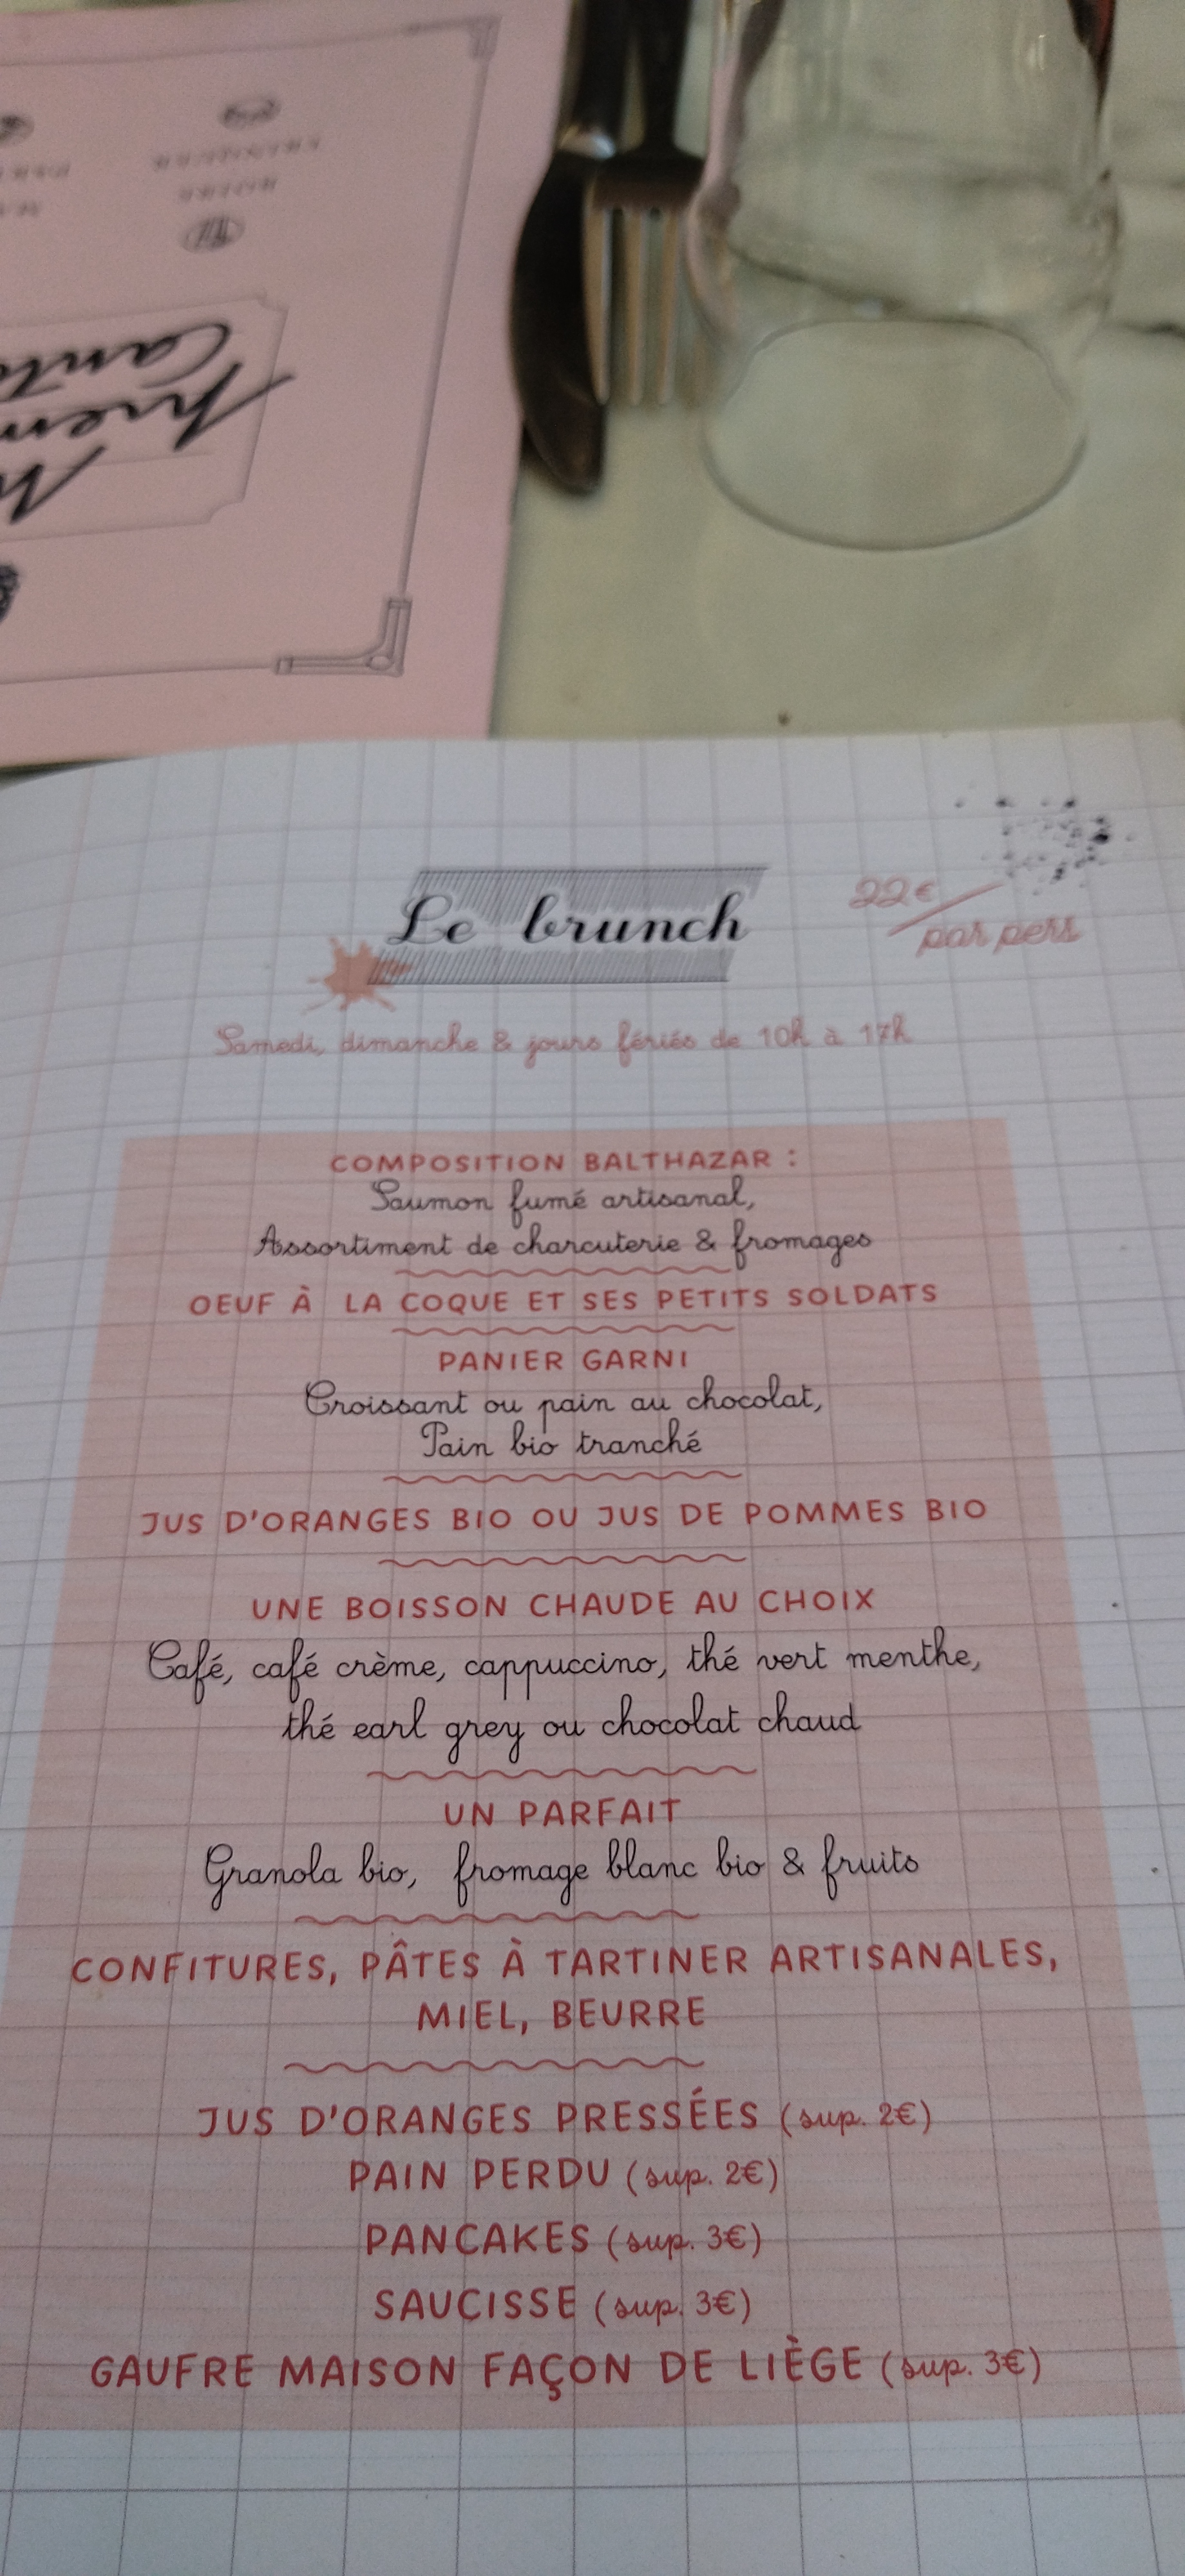 Le brunch
22€
par pers
Samedi, dimanche & jours fériés de 10h à 17h
COMPOSITION BALTHAZAR :
Saumon fumé artisanal,
Assortiment de charcuterie & fromages
OEUF À LA COQUE ET SES PETITS SOLDATS
PANIER GARNI
Croissant ou pain au chocolat,
Pain bio tranché
JUS D'ORANGES BIO OU JUS DE POMMES BIO
UNE BOISSON CHAUDE AU CHOIX
Café, café crème, cappuccino, thé vert menthe,
thé earl grey ou chocolat chaud
UN PARFAIT
Granola bio, fromage blanc bio & fruits
CONFITURES, PÂTES À TARTINER ARTISANALES,
MIEL, BEURRE
JUS D'ORANGES PRESSÉES (sup. 2€)
PAIN PERDU (sup. 2€)
PANCAKES (sup. 3€)
SAUCISSE (sup. 3€)
GAUFRE MAISON FAÇON DE LIÈGE (sup. 3€)